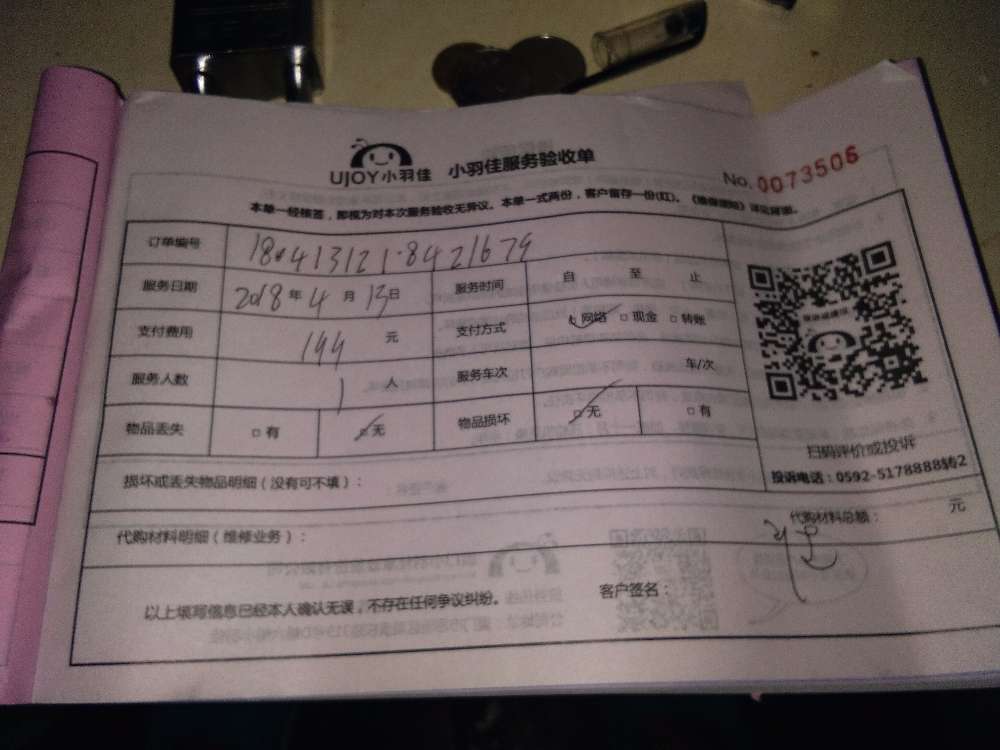 UJOY小羽佳 小羽佳服务验收单
No. 0073506
本单一经接签，即视为对本次服务验收无异议。本单一式两份，客户留存一份(红)。
订单编号 180413121·8421679
服务日期 2018 年 4 月 13 日 服务时间 自 至 止
支付费用 199 元 支付方式 网络 现金 转账
服务人数 1 人 服务车次 车/次
物品丢失 有 无 物品损坏 无 有
扫码评价或投诉
投诉电话：0592-5178888转2
损坏或丢失物品明细（没有可不填）：
代购材料明细（维修业务）： 代购材料总额： 元
以上填写信息已经本人确认无误，不存在任何争议纠纷。 客户签名：